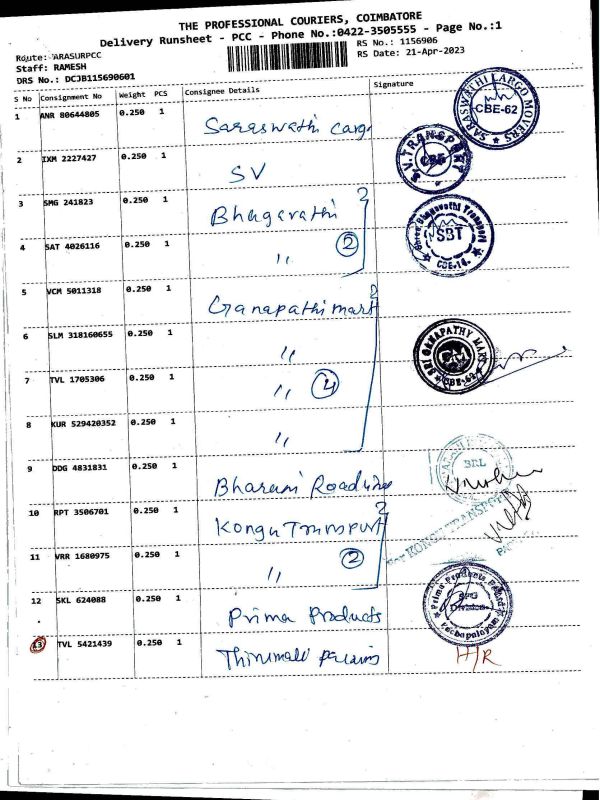 THE PROFESSIONAL COURIERS, COIMBATORE
Delivery Runsheet - PCC - Phone No.:0422-3505555 - Page No.:1
Route: ARASURPCC
RS No.: 1156906
Staff: RAMESH
RS Date: 21-Apr-2023
DRS No.: DCJB115690601
S No Consignment No Weight PCS Consignee Details Signature
1 ANR 80644805 0.250 1 Saraswathi Cargo
SARASWATHI CARGO MOVERS CBE-62
2 IXM 2227427 0.250 1 SV
S.V. TRANSPORT CBE
3 SMG 241823 0.250 1 Bhagavathi
4 SAT 4026116 0.250 1 " 2
Shree Bhagavathi Transport SBT CBE-14.
5 VCM 5011318 0.250 1 Ganapathi mart
6 SLM 318160655 0.250 1 "
SRI GANAPATHY MART GM CBE-62
7 TVL 1705306 0.250 1 " 4
8 KUR 529420352 0.250 1 "
9 DDG 4831831 0.250 1 Bharani Roadlines
BRL
10 RPT 3506701 0.250 1 Kongu Transport
For KONGU TRANSPORT
11 VRR 1680975 0.250 1 " 2
12 SKL 624088 0.250 1 Prima Products
Prima Products Division
13 TVL 5421439 0.250 1 Thirumall
H/R